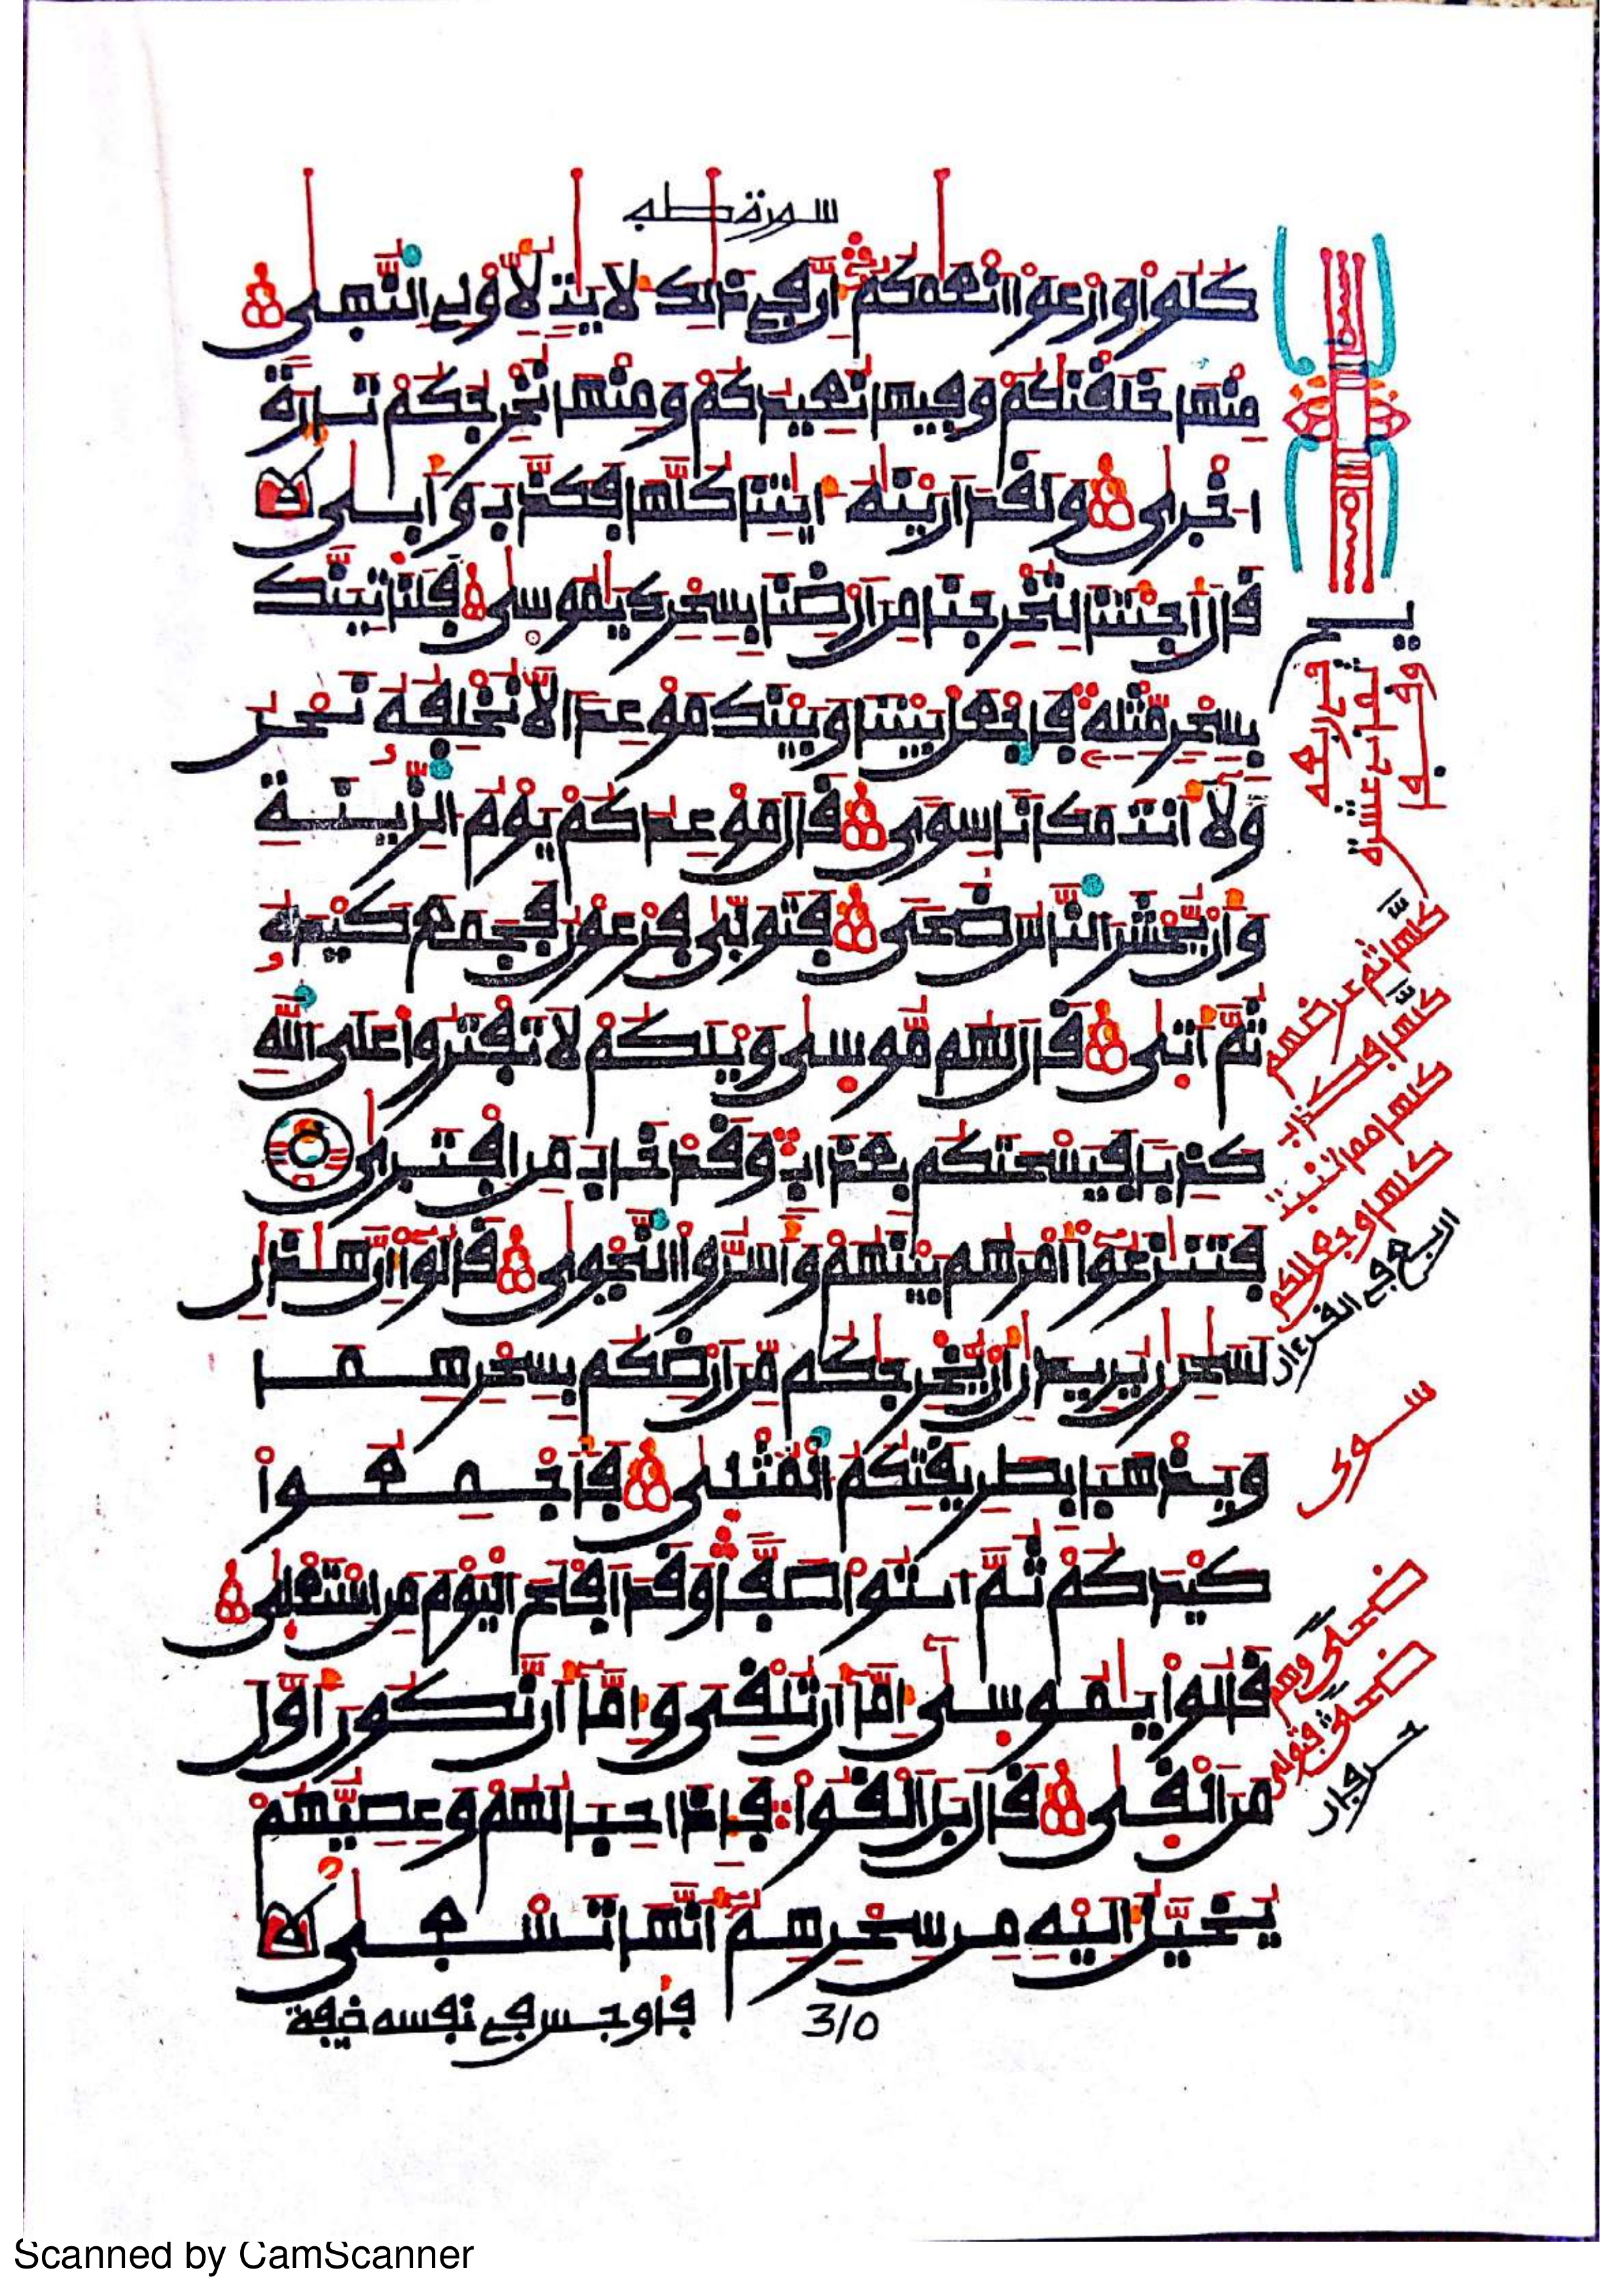 سورة طه
كلوا وارعوا انعمكم إن في ذلك لأيت لأولي النهى
منها خلقنكم وفيها نعيدكم ومنها نخرجكم تارة
اخرى ولقد ارينه ءايتنا كلها فكذب وأبى
قال أجئتنا لتخرجنا من ارضنا بسحرك يموسى فلناتينك
بسحر مثله فاجعل بيننا وبينك موعدا لا نخلفه نحن
ولا أنت مكانا سوى قال موعدكم يوم الزينة
وأن يحشر الناس ضحى فتولى فرعون فجمع كيده
ثم أتى قال لهم موسى ويلكم لا تفتروا على الله
كذبا فيسحتكم بعذاب وقد خاب من افترى
فتنزعوا أمرهم بينهم وأسروا النجوى قالوا إن هذن
لسحرن يريدن أن يخرجكم من ارضكم بسحرهما
ويذهبا بطريقتكم المثلى فأجمعوا
كيدكم ثم ايتوا صفا وقد افلح اليوم من استعلى
قالوا يموسى إما أن تلقي وإما أن نكون أول
من القى قال بل القوا فإذا حبالهم وعصيهم
يخيل إليه من سحرهم أنها تسعى
فأوجس في نفسه خيفة
310
كلها ثم عرضهم
كلها فكذب
كلها مما تنبت
كلها وجعل لكم
اربع في القرءان
سوى
ضحى وهم
ضحى فتولى
حرفان
Scanned by CamScanner